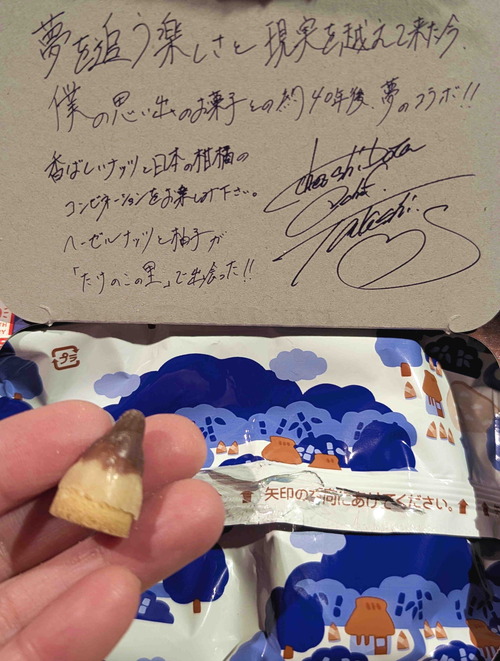 夢を追う楽しさと現実を越えて来た今、
僕の思い出のお菓子との約40年後、夢のコラボ!!
香ばしいナッツと日本の柑橘の
コンビネーションをお楽しみ下さい。
ヘーゼルナッツと柚子が
「たけのこの里」で出会った!!
Takashi
プラ
矢印の方向にあけてください。